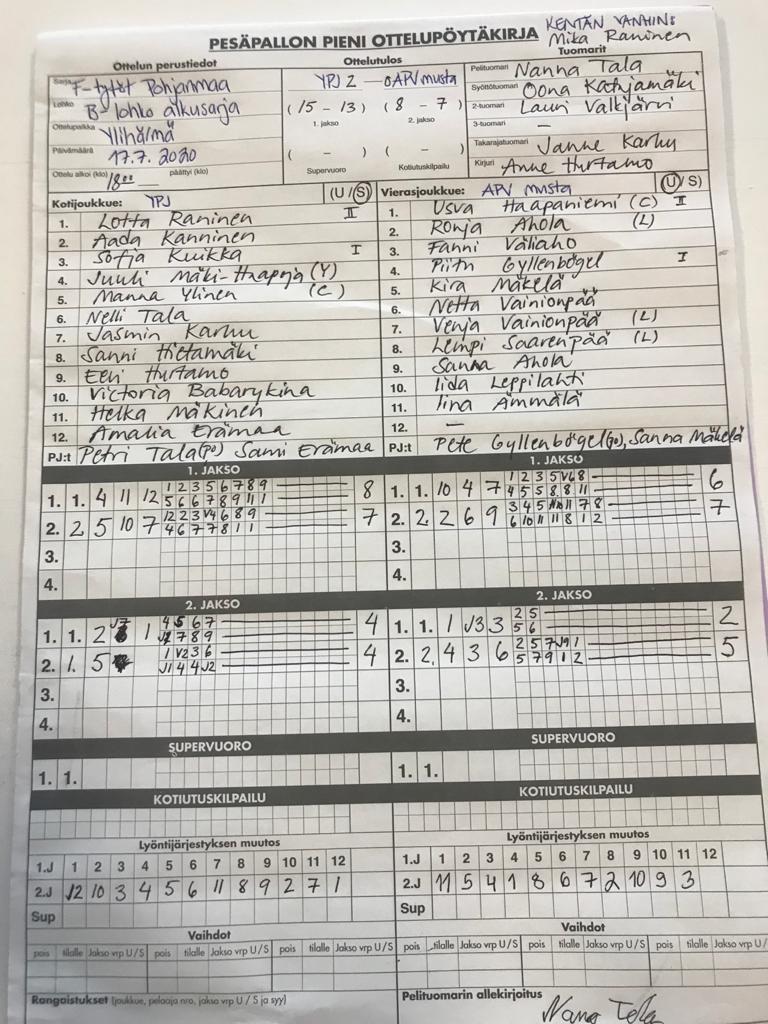 KENTÄN VANHIN:
PESÄPALLON PIENI OTTELUPÖYTÄKIRJA Mika Raninen
Ottelun perustiedot Ottelutulos Tuomarit
Sarja F-tytöt Pohjanmaa
Lohko B-lohko alkusarja
Ottelupaikka Ylihärmä
Päivämäärä 17.7. 2020
Ottelu alkoi (klo) 18⁰⁰ päättyi (klo)
YPJ 2 – 0 APV musta
(15 - 13) (8 - 7)
1. jakso 2. jakso
( - ) ( - )
Supervuoro Kotiutuskilpailu
Pelituomari Nanna Tala
Syöttötuomari Oona Kätjämäki
2-tuomari Lauri Valkjärvi
3-tuomari —
Takarajatuomari Janne Karhu
Kirjuri Anne Hurtamo
Kotijoukkue: YPJ (U / S)
1. Lotta Raninen II
2. Aada Kanninen
3. Sofja Kuikka I
4. Juuli Mäki-Haapoja (Y)
5. Manna Ylinen (C)
6. Nelli Tala
7. Jasmin Karhu
8. Sanni Hietamäki
9. Eevi Hurtamo
10. Victoria Babarykina
11. Helka Mäkinen
12. Amalia Erämaa
PJ:t Petri Tala (po) Sami Erämaa
Vierasjoukkue: APV musta (U / S)
1. Usva Haapaniemi (C) II
2. Ronja Ahola (L)
3. Fanni Väliaho
4. Piitu Gyllenbögel I
5. Kira Mäkelä
6. Netta Vainionpää
7. Venja Vainionpää (L)
8. Lempi Saarenpää (L)
9. Sanna Ahola
10. Iida Leppilahti
11. Iina Ämmälä
12. —
PJ:t Pete Gyllenbögel (po), Sanna Mäkelä
1. JAKSO
1. 1. 4 11 12 1 2 3 5 6 7 8 9 8
5 6 6 7 8 9 11 1
2. 2 5 10 7 12 2 3 V4 6 8 9 7
4 6 7 7 8 1 1
3.
4.
1. JAKSO
1. 1. 10 4 7 1 2 3 5 V6 8 6
4 5 5 8 8 11
2. 2 2 6 9 3 4 5 11 7 8 7
6 10 11 11 8 1 2
3.
4.
2. JAKSO
1. 1. 2 J7 1 4 5 6 7 4
J2 7 8 9
2. 1. 5 1 V2 3 6 4
J1 4 4 J2
3.
4.
2. JAKSO
1. 1. 1 J3 3 2 5 2
5 6
2. 2, 4 3 6 2 5 7 J9 1 5
5 7 9 1 2
3.
4.
SUPERVUORO
1. 1.
SUPERVUORO
1. 1.
KOTIUTUSKILPAILU
KOTIUTUSKILPAILU
Lyöntijärjestyksen muutos
1.J 1 2 3 4 5 6 7 8 9 10 11 12
2.J J2 10 3 4 5 6 11 8 9 2 7 1
Sup
Lyöntijärjestyksen muutos
1.J 1 2 3 4 5 6 7 8 9 10 11 12
2.J 11 5 4 1 8 6 7 2 10 9 3
Sup
Vaihdot
pois tilalle Jakso vrp U / S pois tilalle Jakso vrp U / S pois tilalle Jakso vrp U / S
Vaihdot
pois tilalle Jakso vrp U / S pois tilalle Jakso vrp U / S pois tilalle Jakso vrp U /
Rangaistukset (joukkue, pelaaja nro, jakso vrp U / S ja syy)
Pelituomarin allekirjoitus
Nanna Tala